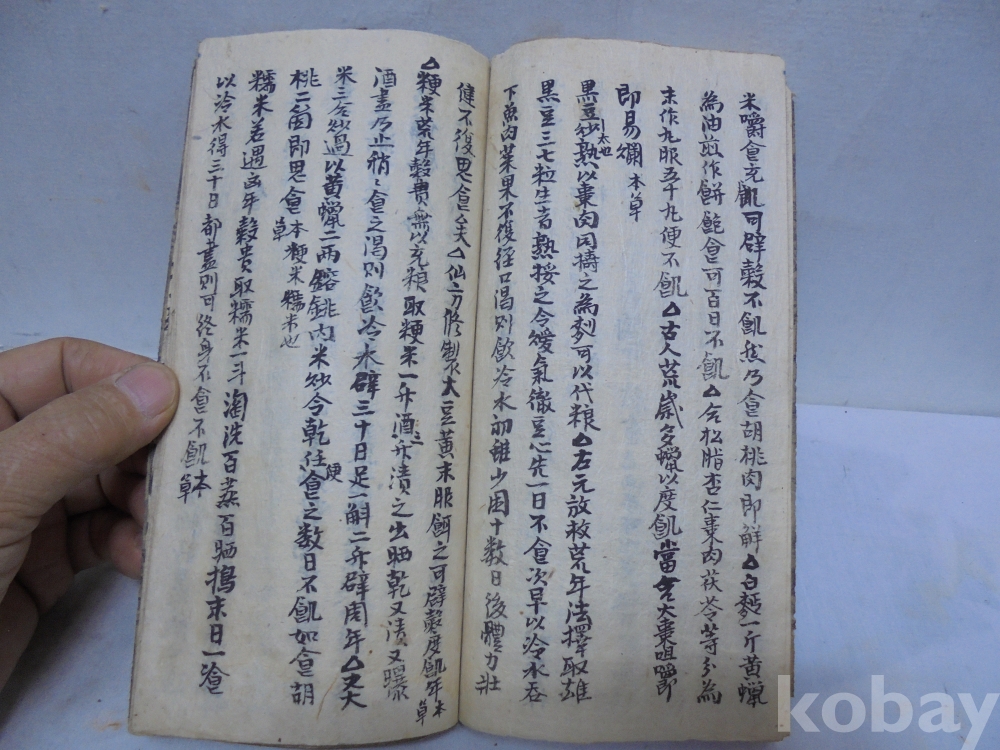 米嚼食充飢可辟穀不飢然乃食胡桃肉即解△白麵一斤黃蠟
為油煎作餠飽食可百日不飢△又松脂杏仁棗肉茯苓等分為
末作丸服五十丸便不飢△古人荒歲多蠟以度飢當合大棗咀嚼
即易爛 本草
黑豆 太也 炒熟以棗肉同擣之為䴵可以代粮△左元放救荒年法擇取雄
黑豆三七粒生者熟挼之令煖氣徹豆心先一日不食次早以冷水吞
下魚肉菜果不復徑口渴則飮冷水初雖少困十數日後體力壯
健不復思食矣△仙方修製大豆黃末服餌之可辟穀度飢年 本草
△粳米荒年穀貴無以充粮取粳米一升酒三升漬之出晒乾又漬又曝
酒盡乃止稍〻食之渴則飮冷水辟三十日足一斛二升辟周年△又大
米三合炒過以黃蠟二兩鎔銚內米炒令乾任便食之數日不飢如食胡
桃二箇即思食 本草 粳米糯米也
糯米若遇凶年穀貴取糯米一斗淘洗百蒸百晒搗末日一飡
以冷水得三十日都盡則可終身不食不飢 本草
kobay